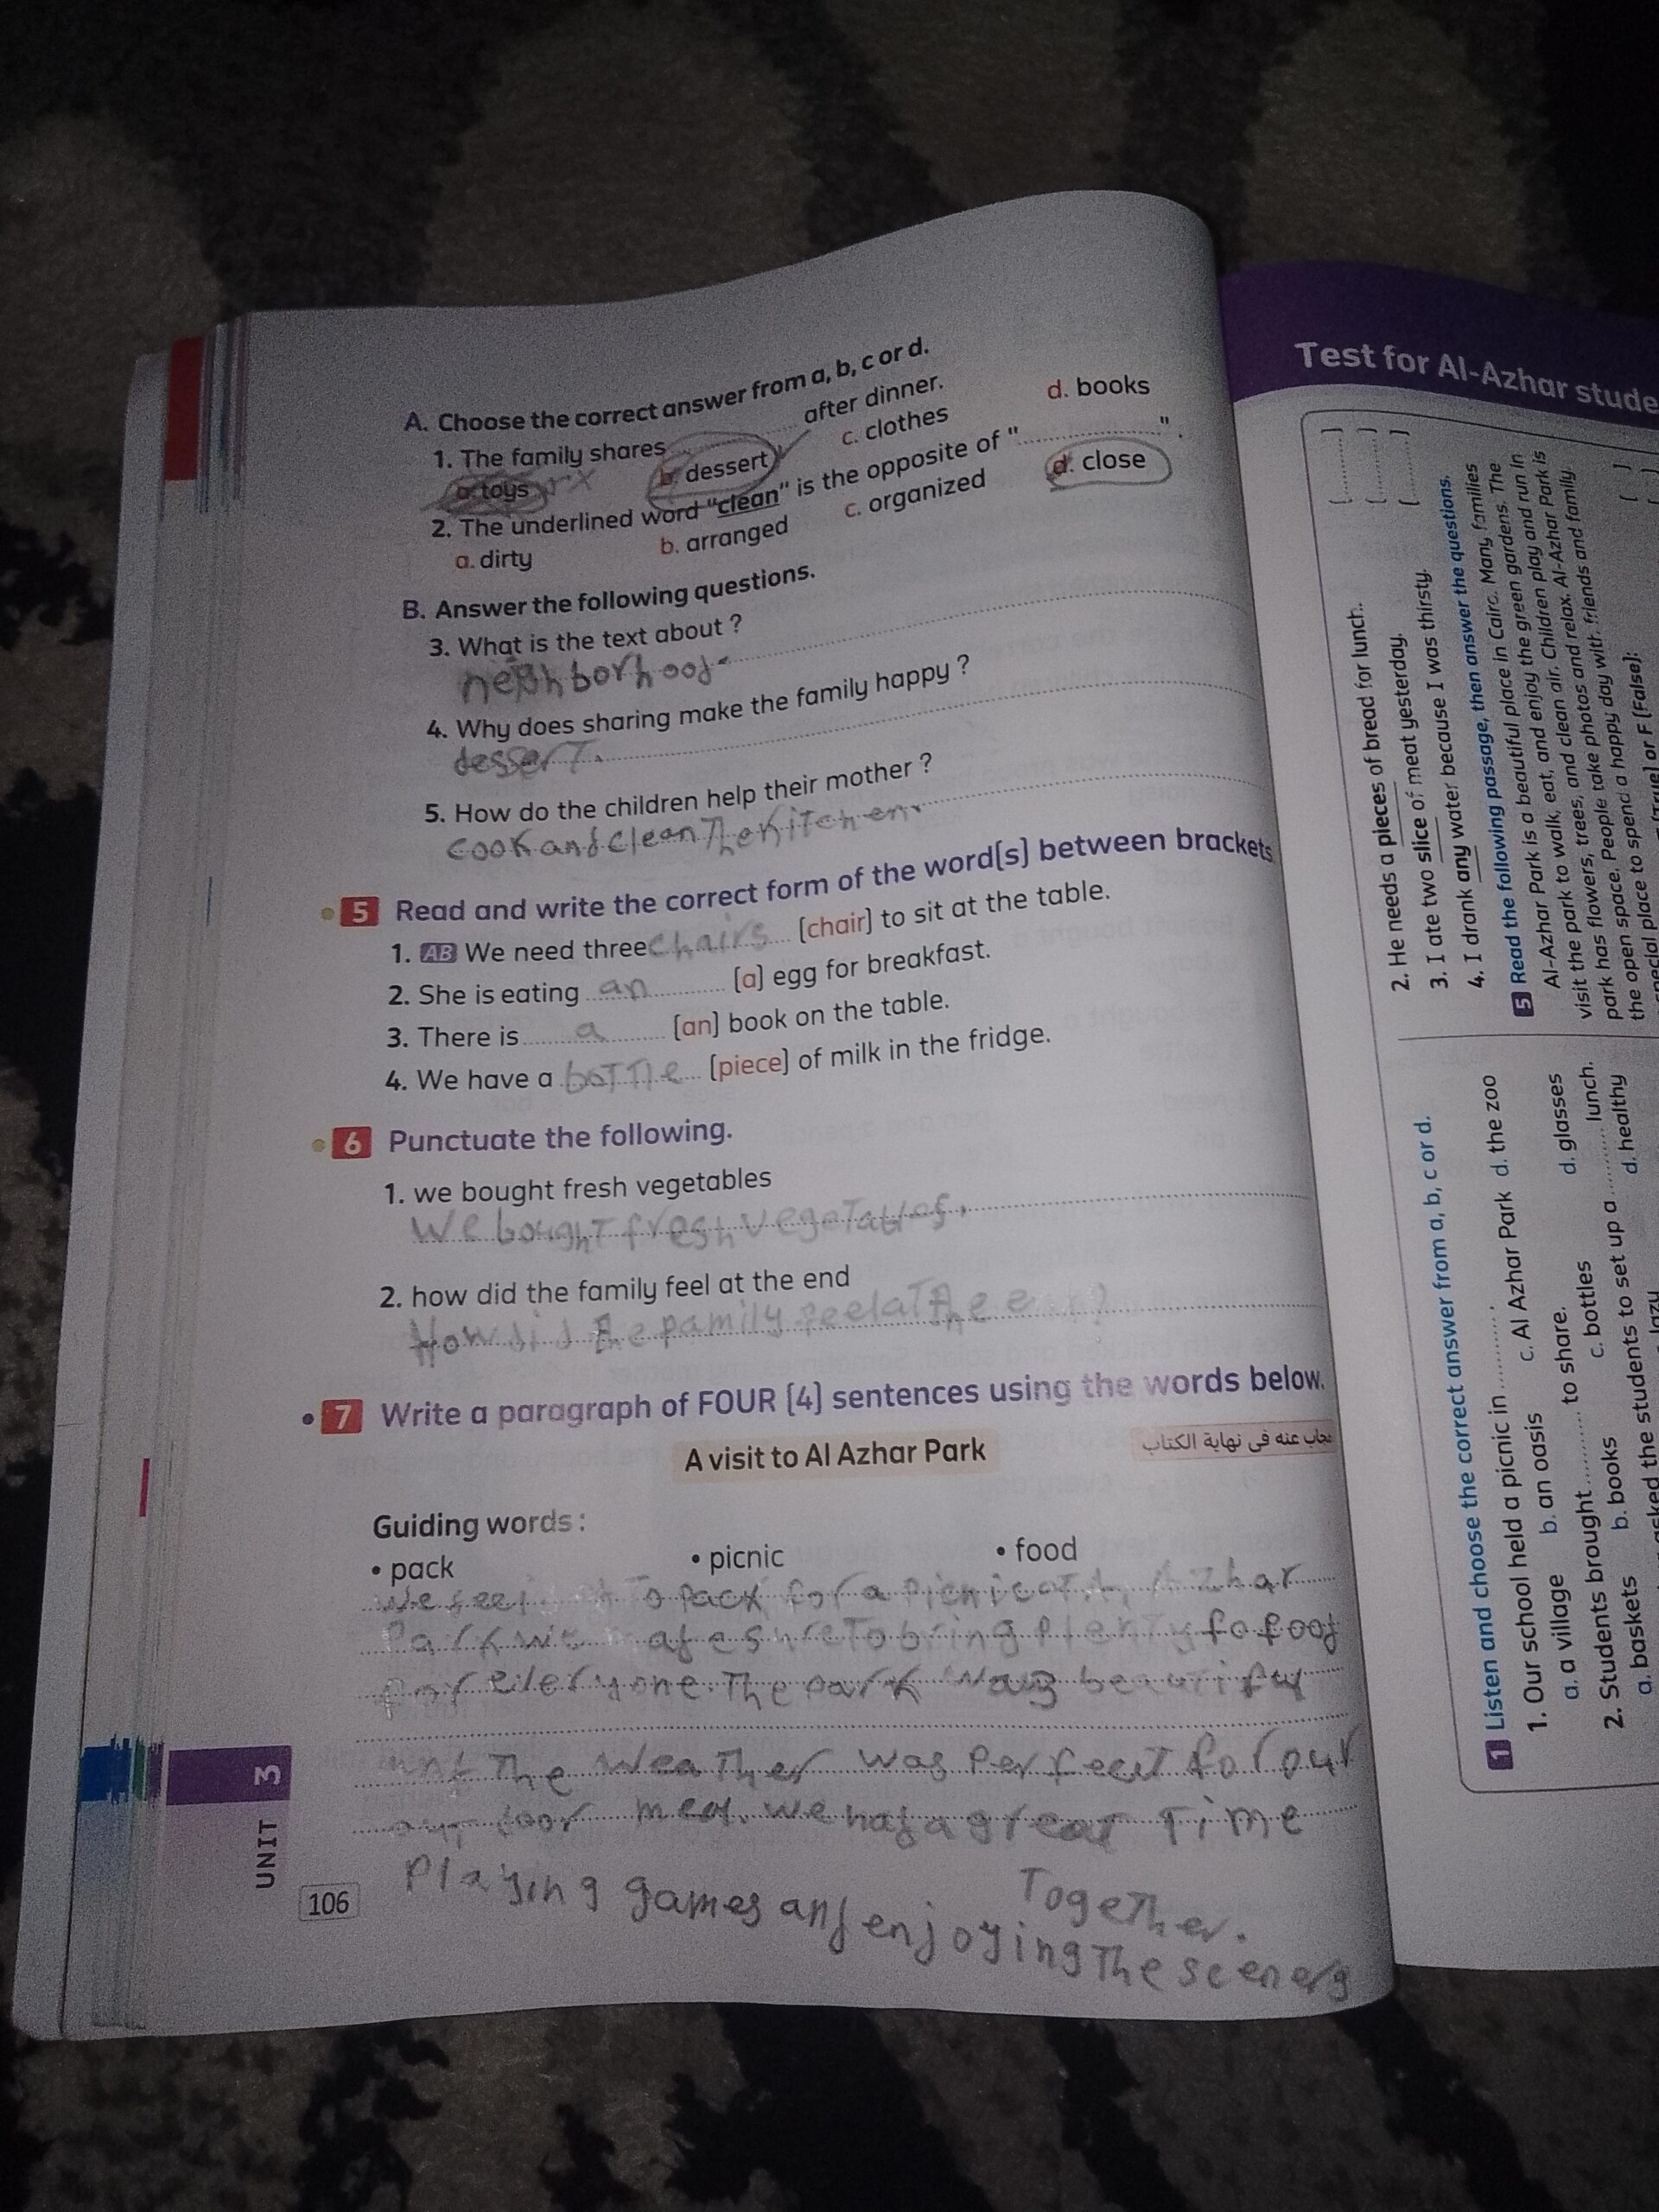 A. Choose the correct answer from a, b, c or d.
1. The family shares .......... after dinner.
a. toys b. dessert c. clothes d. books
2. The underlined word "clean" is the opposite of "..........".
a. dirty b. arranged c. organized d. close
B. Answer the following questions.
3. What is the text about ?
neighborhood.
4. Why does sharing make the family happy ?
dessert.
5. How do the children help their mother ?
cook and clean The Kitchen.
5 Read and write the correct form of the word(s) between brackets
1. AB We need three chairs (chair) to sit at the table.
2. She is eating an (a) egg for breakfast.
3. There is a (an) book on the table.
4. We have a bottle (piece) of milk in the fridge.
6 Punctuate the following.
1. we bought fresh vegetables
We bought fresh vegetables.
2. how did the family feel at the end
How did The pamily feel at The e
7 Write a paragraph of FOUR (4) sentences using the words below.
A visit to Al Azhar Park
مجاب عنه فى نهاية الكتاب
Guiding words :
• pack • picnic • food
We pack for a Picnic Azhar
Park we to bring Plenty fo food
for everyone. The park was
The Weather was perfect for our
meal. we had a great Time
Playing games and enjoying The scenery
Together.
UNIT 3
106
Test for Al-Azhar stude
1 Listen and choose the correct answer from a, b, c or d.
1. Our school held a picnic in ...........
a. a village b. an oasis c. Al Azhar Park d. the zoo
2. Students brought .......... to share.
a. baskets b. books c. bottles d. glasses
asked the students to set up a .......... lunch.
lazy d. healthy
2. He needs a pieces of bread for lunch.
3. I ate two slice of meat yesterday.
4. I drank any water because I was thirsty.
5 Read the following passage, then answer the questions.
Al-Azhar Park is a beautiful place in Cairo. Many families
visit the park to walk, eat, and enjoy the green gardens. The
park has flowers, trees, and clean air. Children play and run in
the open space. People take photos and relax. Al-Azhar Park is
special place to spend a happy day with friends and family.
(True) or F (False):